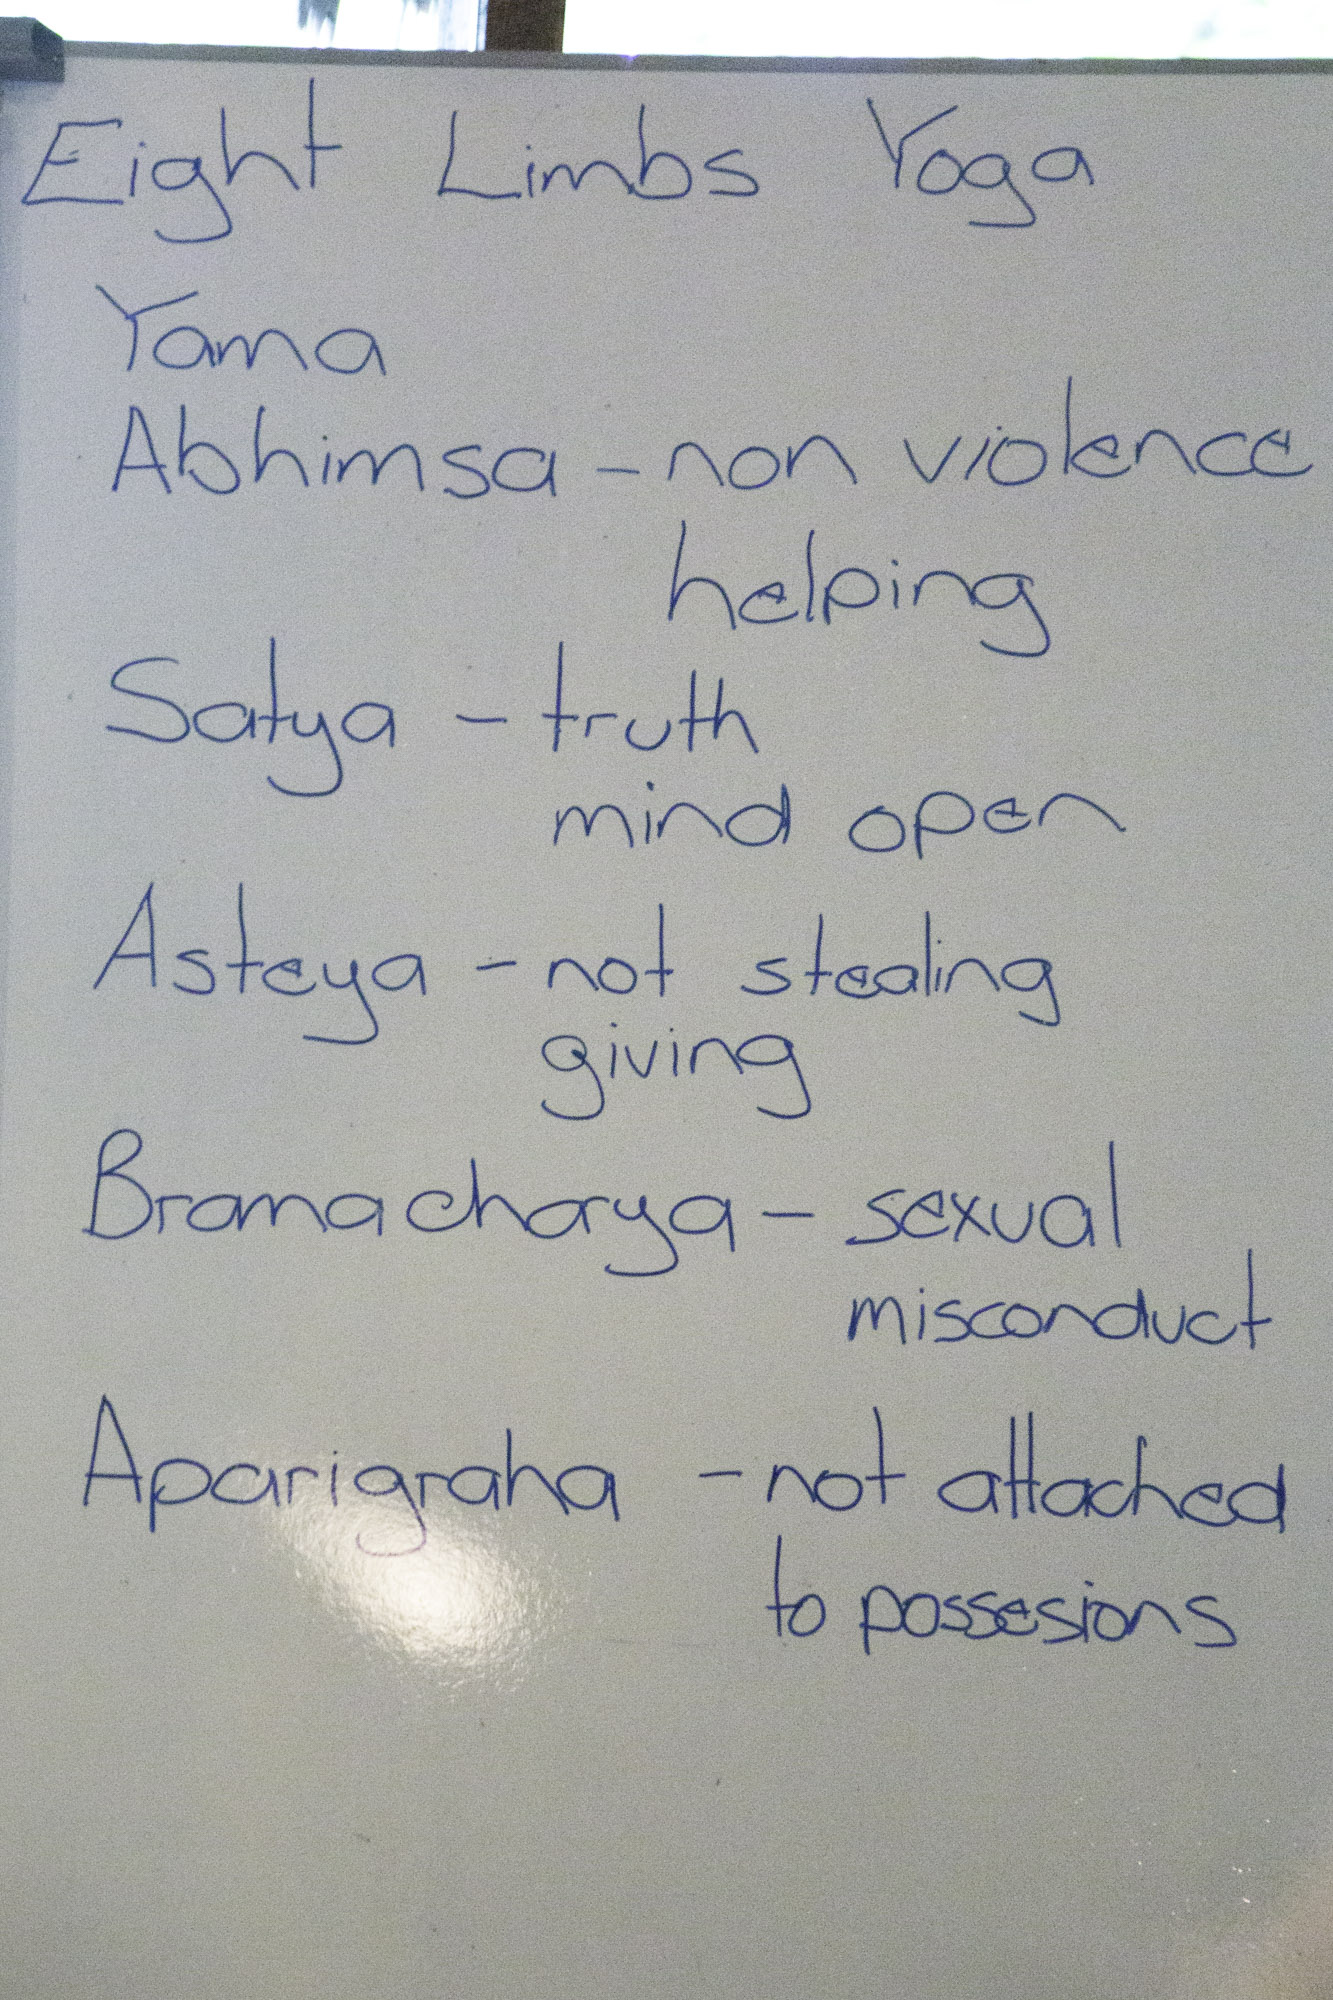 Eight Limbs Yoga
Yama
Abhimsa - non violence
helping
Satya - truth
mind open
Asteya - not stealing
giving
Bramacharya - sexual
misconduct
Aparigraha - not attached
to possesions